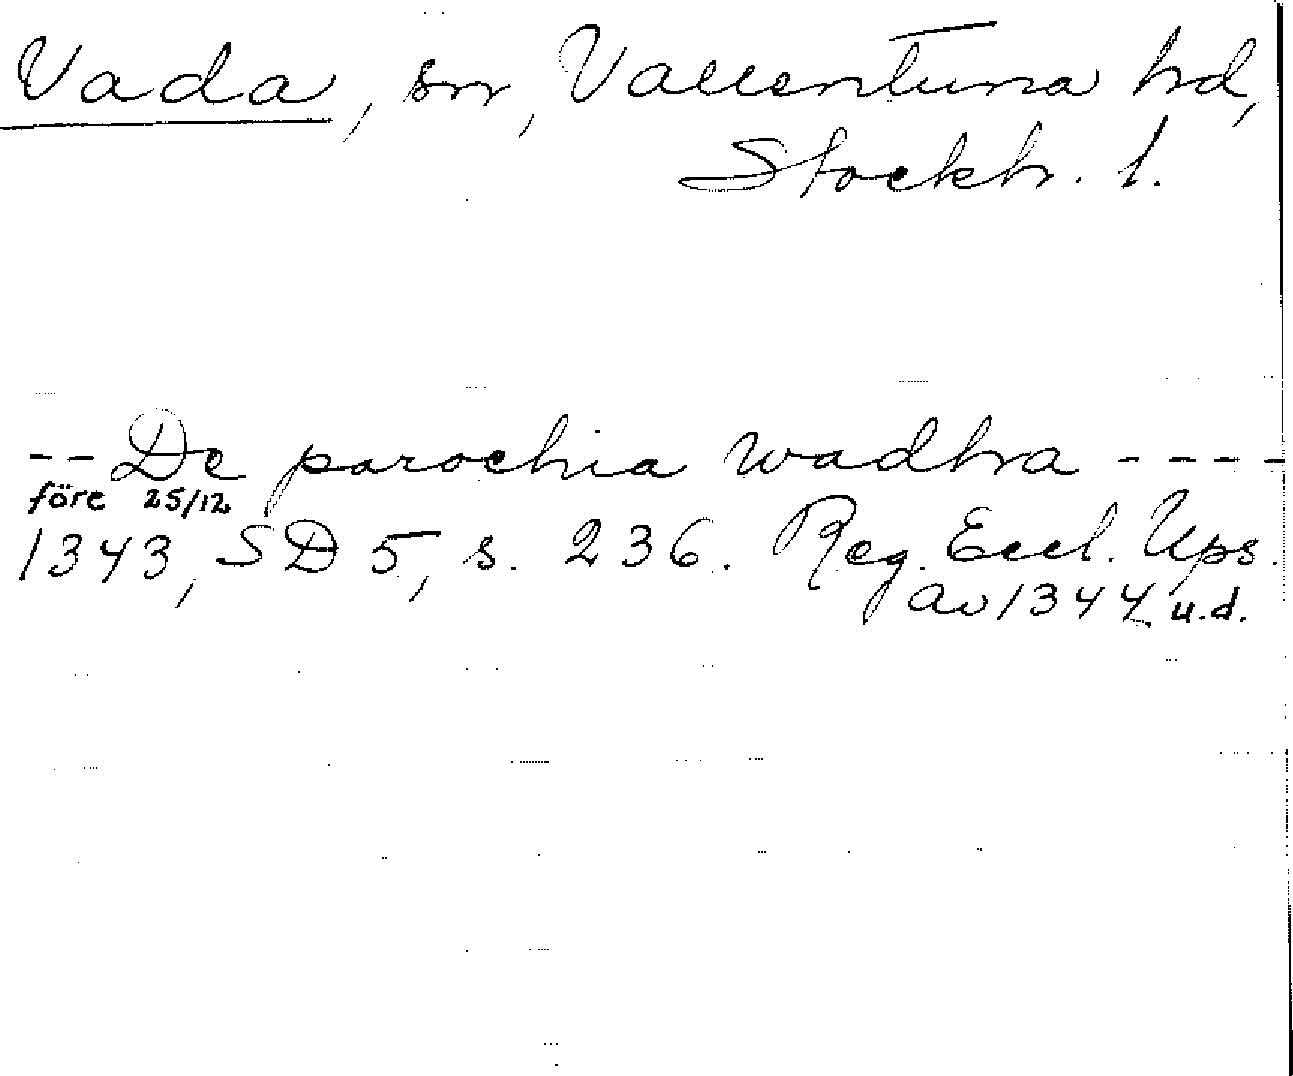 Vada, sn, Vallentuna hd,
Stockh. l.
-- De parochia wadha ----
före 25/12
1343, SD 5, s. 236. Reg. Eccl. Ups.
av 1344 u.d.